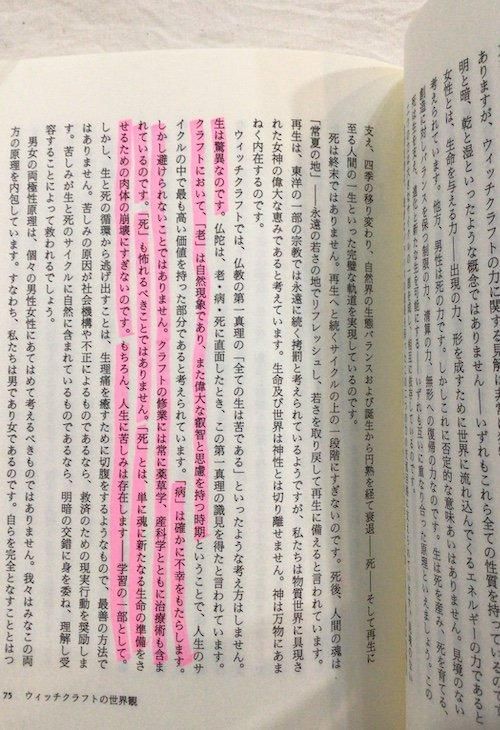 ありますが、ウィッチクラフトの力に関する見解、
明と暗、乾と湿といったような概念ではありません。いずれもこれら全ての
女性とは、生命を与える力――出現の力、形を成すために世界に流れ込んでくるエネルギーの力であると
考えられています。他方、男性は死の力です。しかしこれに否定的な意味あいはありません。見境のない
創造に対しバランスを保つ制限の力、清算の力、無形への復帰の力なのです。生は死を産み、死を育てる、
死は生を支え、進化と新たな生を可能とする。いずれも互いに重なり合った原理といえましょう。この
支え、四季の移り変わり、自然界の生態バランスおよび誕生から円熟を経て衰退――死――そして再生に
至る人間の一生といった完璧な軌道を実現しているのです。
死は終末ではありません。再生へと続くサイクルの上の一段階にすぎないのです。死後、人間の魂は
「常夏の地」、永遠の若さの地でリフレッシュし、若さを取り戻して再生に備えると言われています。
再生は、東洋の一部の宗教では永遠に続く拷罰と考えられているようですが、私たちは物質世界に具現さ
れた女神の偉大な恵みであると考えています。生命及び世界は神性とは切り離せません。神は万物にあま
ねく内在するのです。
ウィッチクラフトでは、仏教の第一真理の「全ての生は苦である」といったような考え方はしません。
生は驚異なのです。仏陀は、老・病・死に直面したとき、この第一真理の識見を得たと言われています。
クラフトにおいて、「老」は自然現象であり、また偉大な叡智と思慮を持つ時期ということで、人生のサ
イクルの中で最も高い価値を持った部分であると考えられています。「病」は確かに不幸をもたらします。
しかし避けられないことではありません。クラフトの修業には常に薬草学、産科学とともに治療術も含ま
れているのです。「死」も怖れるべきことではありません。「死」とは、単に魂に新たなる生命の準備をさ
せるための肉体の崩壊にすぎないのです。もちろん、人生に苦しみは存在します――学習の一部として。
しかし、生と死の循環から逃げ出すことは、生理痛を癒すために切腹をするようなもので、最善の方法で
はありません。苦しみの原因が社会機構や不正によるものであるなら、救済のための現実行動を奨励しま
す。苦しみが生と死のサイクルに自然に含まれているものであるなら、明暗の交錯に身を委ね、理解し受
容することによって救われるでしょう。
男女の両極性原理は、個々の男性女性にあてはめて考えるべきものではありません。我々はみなこの両
方の原理を内包しています。すなわち、私たちは男であり女であるのです。自らを完全となすこととはつ
75 ウィッチクラフトの世界観